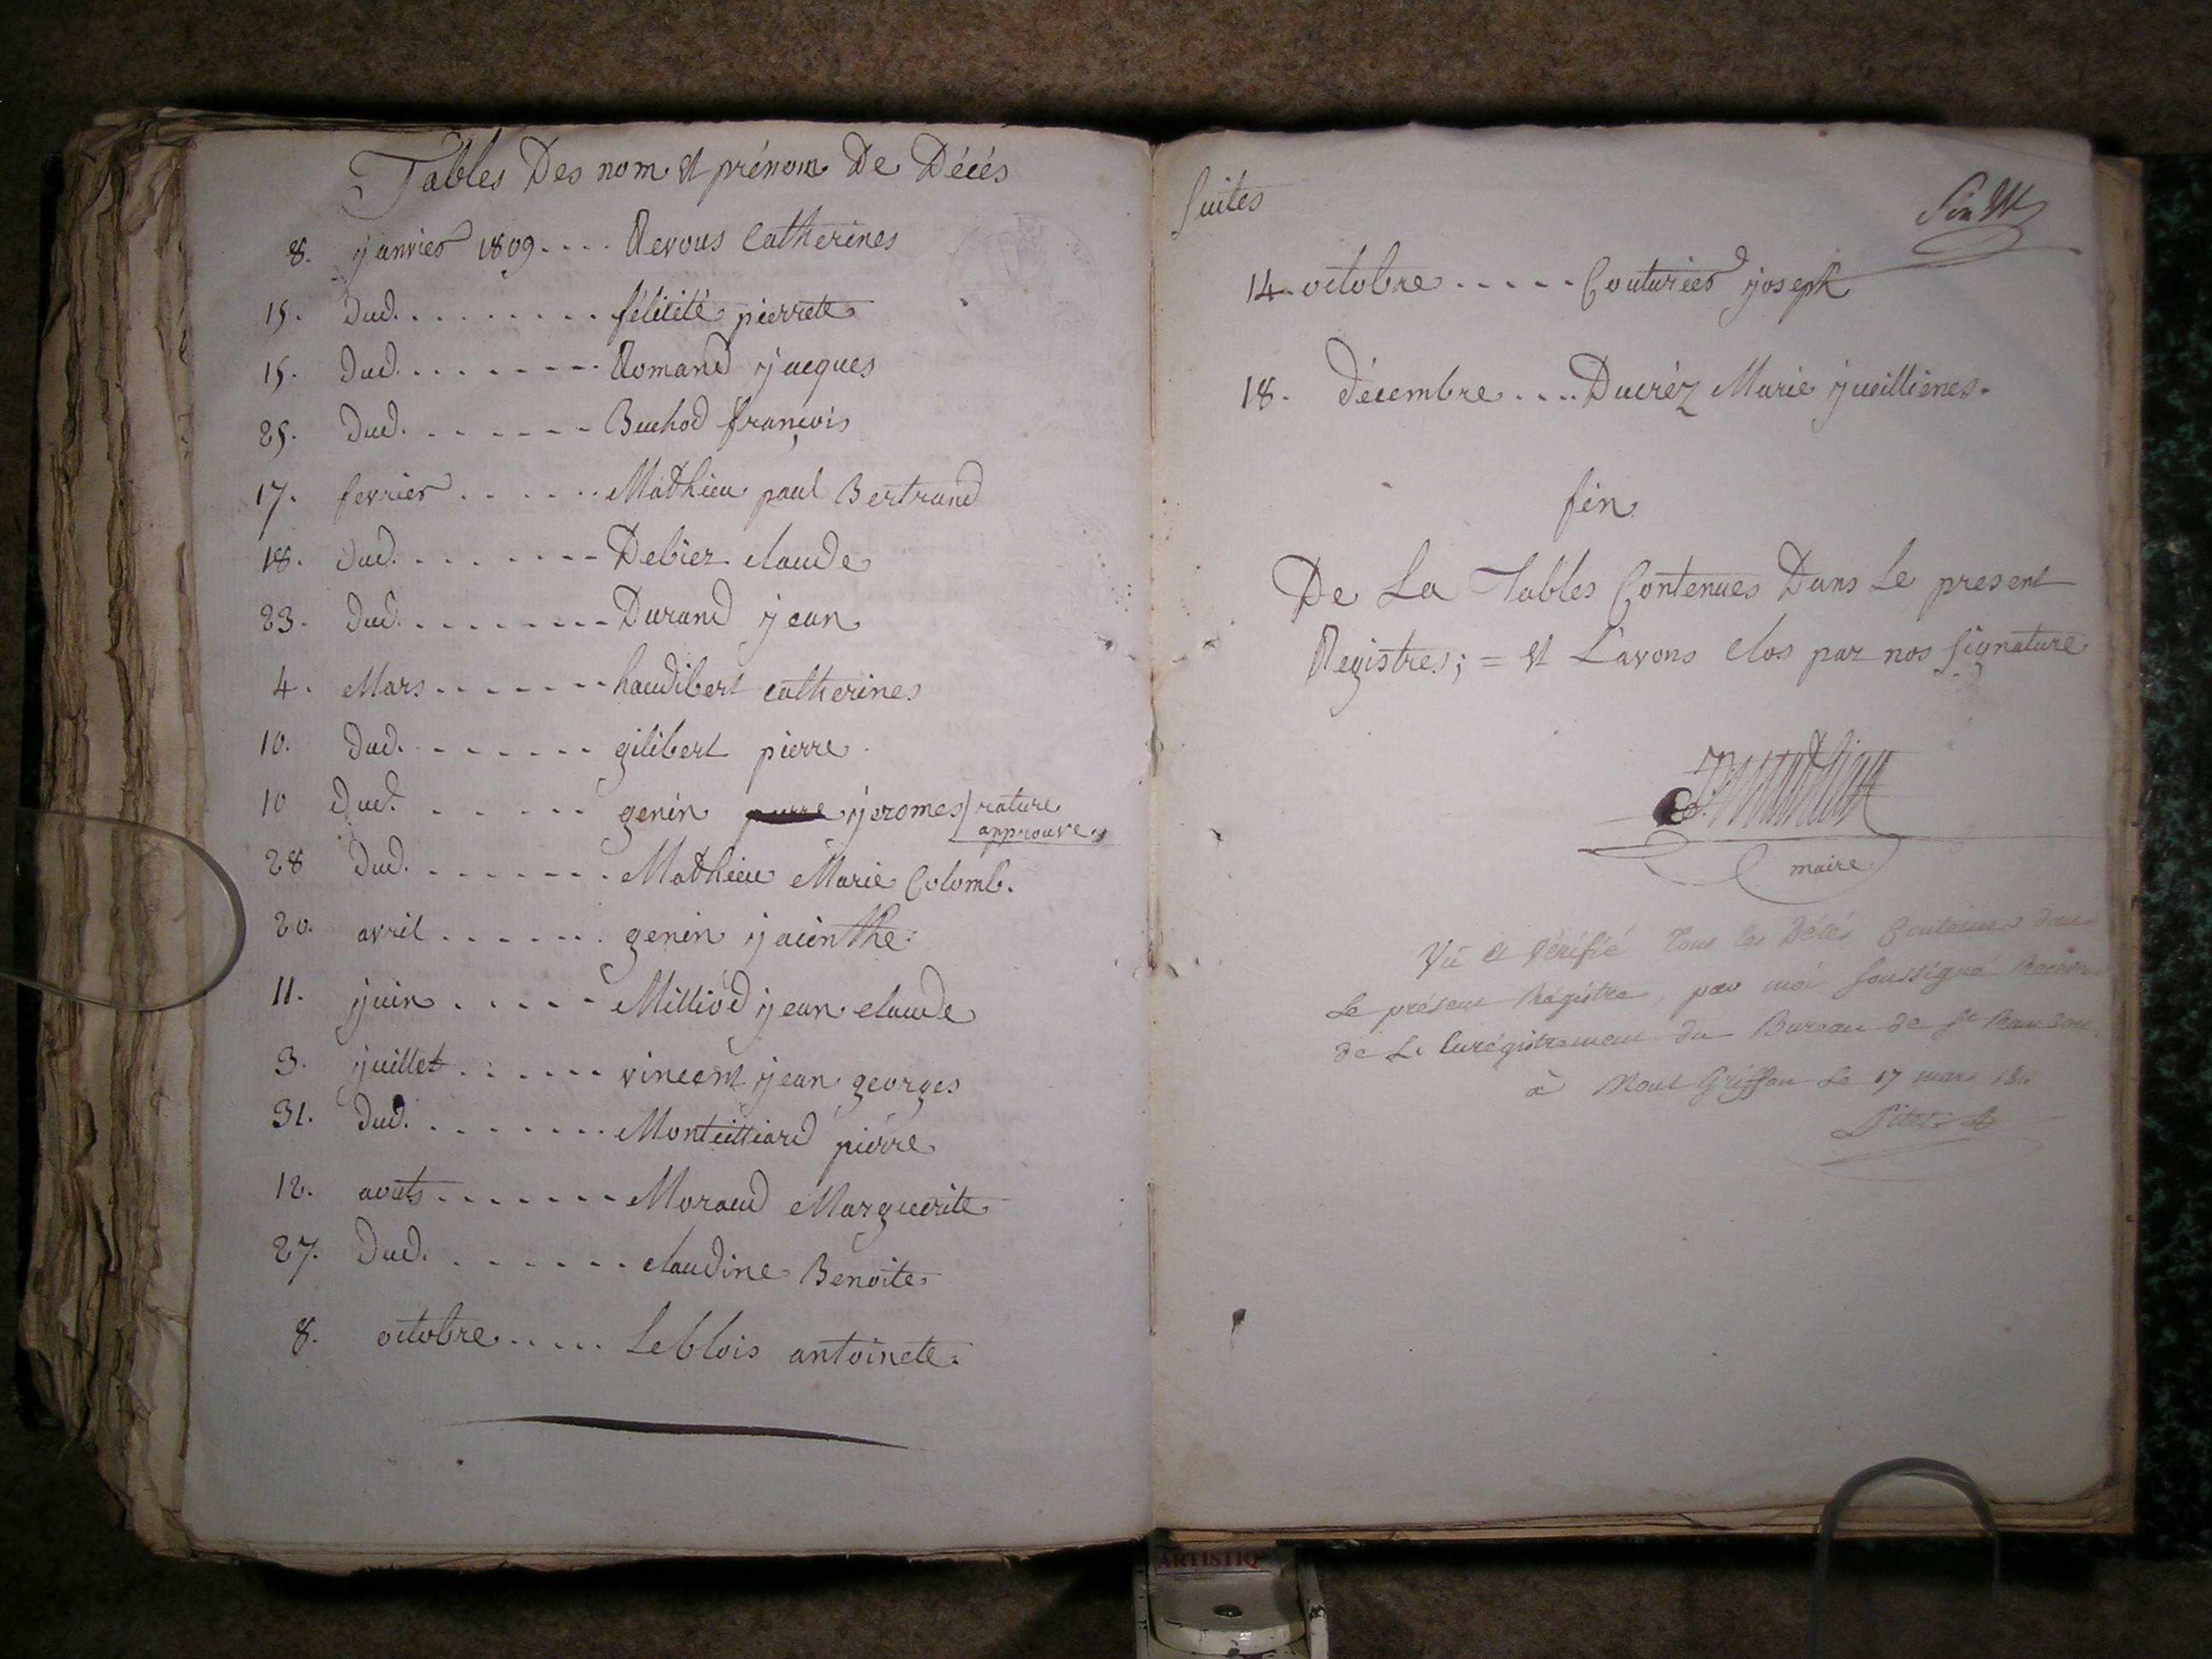 Tables Des nom et prénom De Décés
8. janvier 1809.... Revous Catherines
15. Dud......... félicité pierrette
15. Dud......... Romand jacques
25. Dud....... Buchod françois
17. fevrier...... Mathieu paul Bertrand
18. Dud........ Debiez claude
23. Dud......... Durand jean
4. Mars....... haudibert catherines
10. Dud....... gilibert pierre
10 Dud...... genin pierre jeromes rature
approuve
28 Dud........ Mathieu Marie Colomb.
20. avril...... genin jacinthe
11. juin..... Milliod jean claude
3. juillet...... vincent jean georges
31. Dud........ Monteilliard pierre
12. aouts....... Moraud Marguerite
27. Dud....... claudine Benoite
8. octobre..... Leblois antoinete
Suites
14. octobre..... Couturier joseph
18. décembre.... Ducréz Marie jueillienes.
fin
De La Tables Contenues Dans Le present
Registres; = et L'avons clos par nos signature
maire
Vû et Vérifié Tous les Décés Contenus dans
Le présent Régistre, par moi soussigné Receveur
de L'Enrégistrement du Bureau de St
à Mont Griffon Le 17 mars
ARTISTIQ